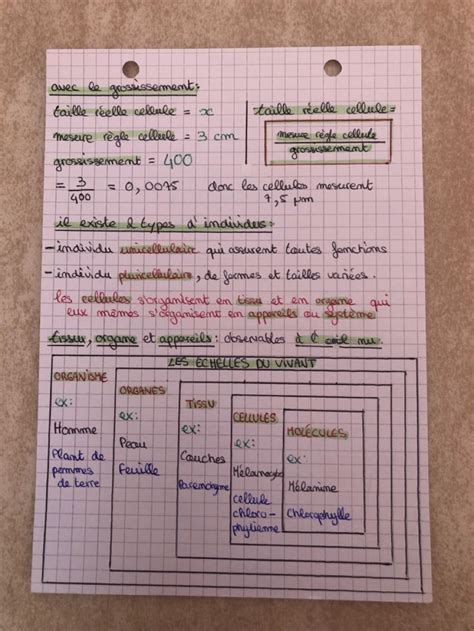 avec le grossissement:
taille réelle cellule = x
mesure règle cellule = 3 cm
grossissement = 400
= 3/400 = 0,0075 donc les cellules mesurent
7,5 µm
taille réelle cellule =
mesure règle cellule
grossissement
il existe 2 types d'individus:
- individu unicellulaire qui assurent toutes fonctions
- individu pluricellulaire, de formes et tailles variées.
les cellules s'organisent en tissu et en organe qui
eux mêmes s'organisent en appareils ou système
tissu, organe et appareils: observables à l'oeil nu.
LES ÉCHELLES DU VIVANT
ORGANISME
ex:
Homme
Plant de
pommes
de terre
ORGANES
ex:
Peau
Feuille
TISSU
ex:
Couches
Parenchyme
CELLULES
ex:
Mélanocyte
cellule
chloro-
phylienne
MOLÉCULES
ex:
Mélanine
Chlorophylle